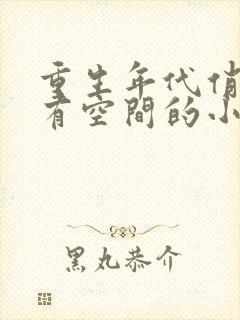 重生年代俏
有空間的小
黑丸恭介